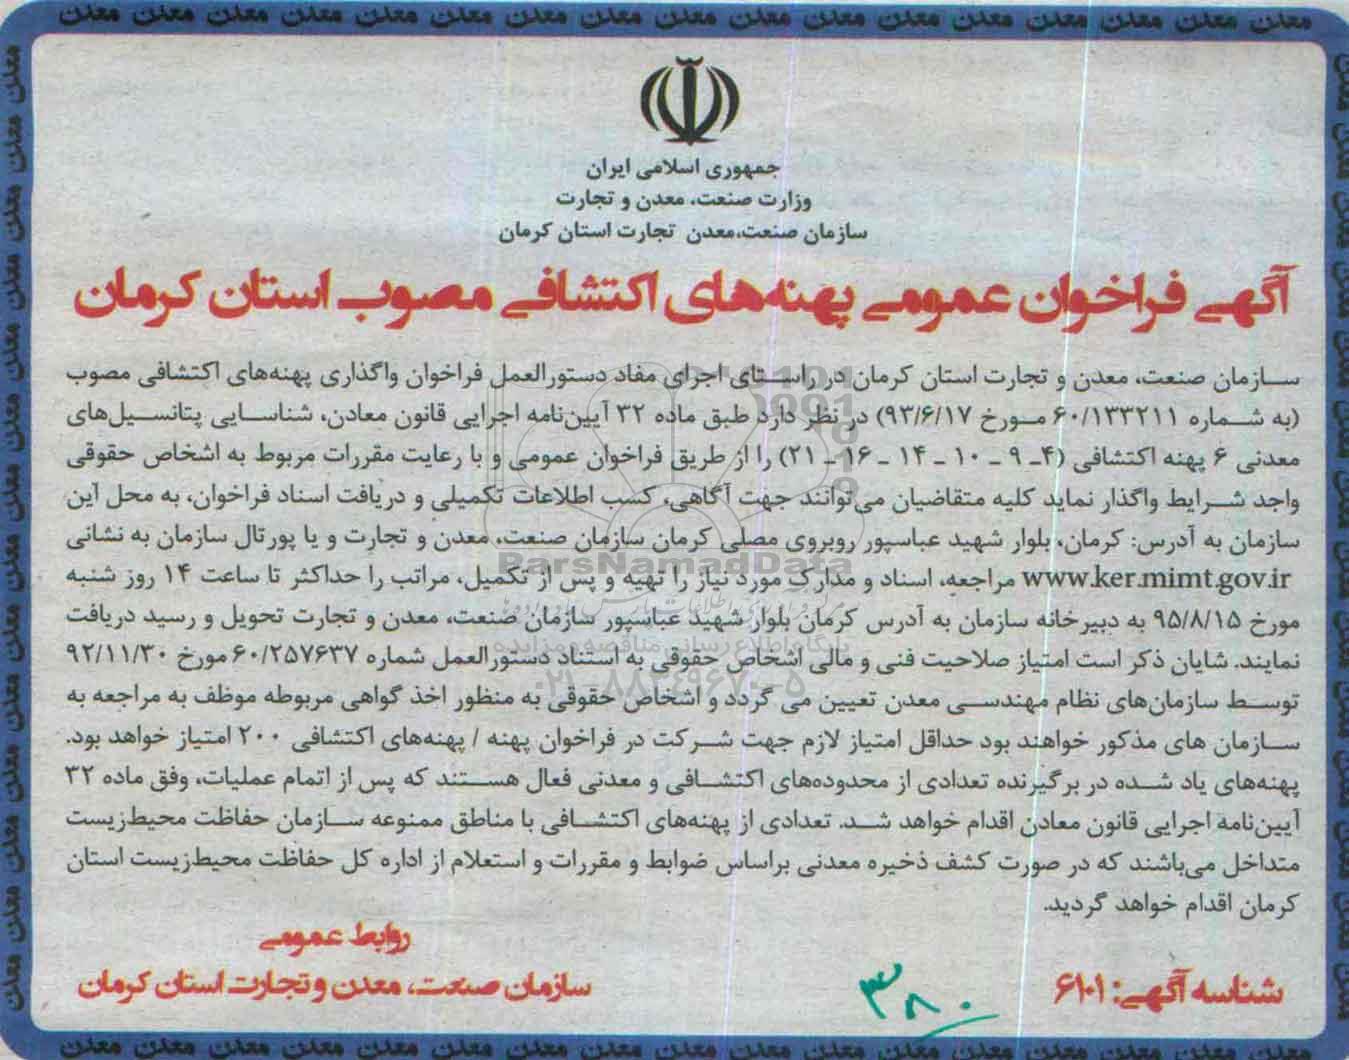 معدن معدن معدن معدن معدن معدن معدن معدن معدن معدن معدن معدن معدن معدن معدن معدن معدن معدن
جمهوری اسلامی ایران
وزارت صنعت، معدن و تجارت
سازمان صنعت،معدن تجارت استان کرمان
آگهی فراخوان عمومی پهنه‌های اکتشافی مصوب استان کرمان
سازمان صنعت، معدن و تجارت استان کرمان در راستای اجرای مفاد دستورالعمل فراخوان واگذاری پهنه‌های اکتشافی مصوب
(به شماره ۶۰/۱۳۳۲۱۱ مورخ ۹۳/۶/۱۷) در نظر دارد طبق ماده ۳۲ آیین‌نامه اجرایی قانون معادن، شناسایی پتانسیل‌های
معدنی ۶ پهنه اکتشافی (۴ـ ۹ ـ ۱۰ ـ ۱۴ ـ ۱۶ ـ ۲۱) را از طریق فراخوان عمومی و با رعایت مقررات مربوط به اشخاص حقوقی
واجد شرایط واگذار نماید کلیه متقاضیان می‌توانند جهت آگاهی، کسب اطلاعات تکمیلی و دریافت اسناد فراخوان، به محل این
سازمان به آدرس: کرمان، بلوار شهید عباسپور روبروی مصلی کرمان سازمان صنعت، معدن و تجارت و یا پورتال سازمان به نشانی
www.ker.mimt.gov.ir مراجعه، اسناد و مدارک مورد نیاز را تهیه و پس از تکمیل، مراتب را حداکثر تا ساعت ۱۴ روز شنبه
مورخ ۹۵/۸/۱۵ به دبیرخانه سازمان به آدرس کرمان بلوار شهید عباسپور سازمان صنعت، معدن و تجارت تحویل و رسید دریافت
نمایند. شایان ذکر است امتیاز صلاحیت فنی و مالی اشخاص حقوقی به استناد دستورالعمل شماره ۶۰/۲۵۷۶۳۷ مورخ ۹۲/۱۱/۳۰
توسط سازمان‌های نظام مهندسی معدن تعیین می گردد و اشخاص حقوقی به منظور اخذ گواهی مربوطه موظف به مراجعه به
سازمان های مذکور خواهند بود حداقل امتیاز لازم جهت شرکت در فراخوان پهنه / پهنه‌های اکتشافی ۲۰۰ امتیاز خواهد بود.
پهنه‌های یاد شده در برگیرنده تعدادی از محدوده‌های اکتشافی و معدنی فعال هستند که پس از اتمام عملیات، وفق ماده ۳۲
آیین‌نامه اجرایی قانون معادن اقدام خواهد شد. تعدادی از پهنه‌های اکتشافی با مناطق ممنوعه سازمان حفاظت محیط‌زیست
متداخل می‌باشند که در صورت کشف ذخیره معدنی براساس ضوابط و مقررات و استعلام از اداره کل حفاظت محیط‌زیست استان
کرمان اقدام خواهد گردید.
روابط عمومی
سازمان صنعت، معدن و تجارت استان کرمان
شناسه آگهی: ۶۱۰۱
۳۸۰
ParsNamadData
پایگاه اطلاع رسانی مناقصه و مزایده
۰۲۱-۸۸۳۴۹۶۷۰-۵
معدن معدن معدن معدن معدن معدن معدن معدن معدن معدن معدن معدن معدن معدن معدن معدن معدن معدن